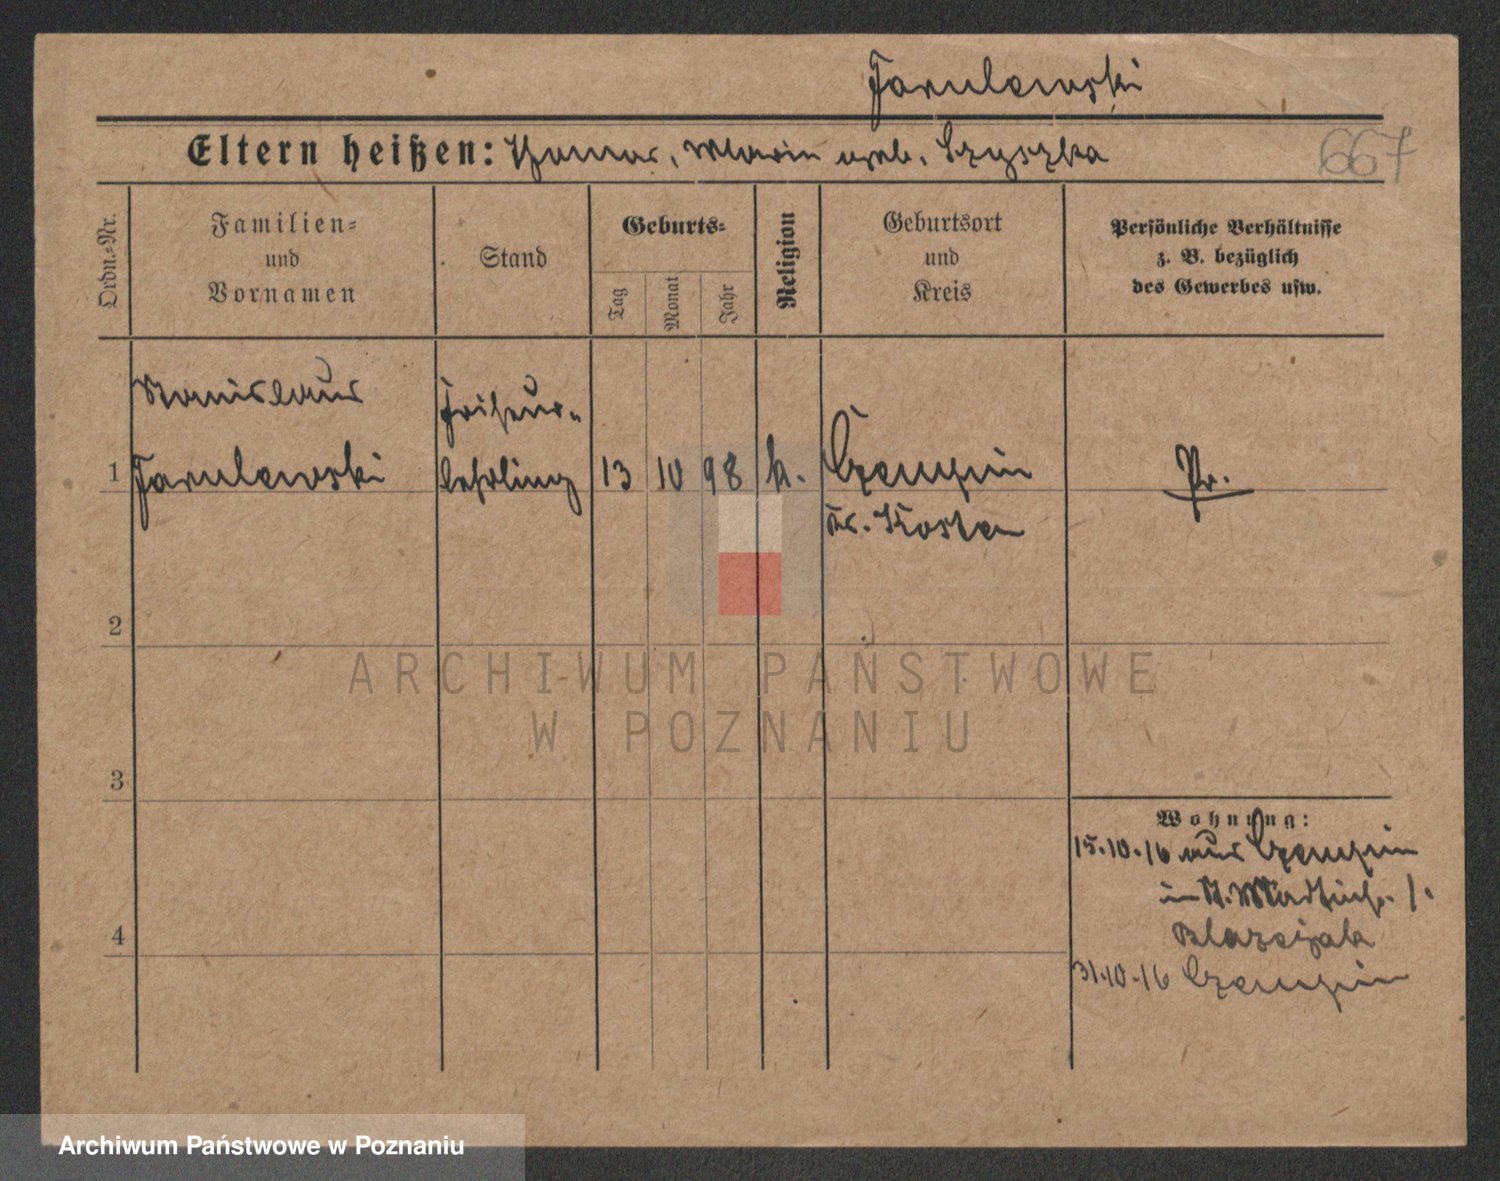 Farulewski
Eltern heißen: Thomas, Maria geb. Szyszka
667
Ordn.=Nr.
Familien=
und
Vornamen
Stand
Geburts=
Tag
Monat
Jahr
Religion
Geburtsort
und
Kreis
Persönliche Verhältnisse
z. B. bezüglich
des Gewerbes usw.
Stanislaus
Friseur-
1 Farulewski lehrling 13 10 98 k. Czempin Pr.
Kr. Kosten
2
3
4
Wohnung:
15.10.16 aus Czempin
in St. Martinstr.
Blazejak
31.10.16 Czempin
ARCHIWUM PAŃSTWOWE
W POZNANIU
Archiwum Państwowe w Poznaniu